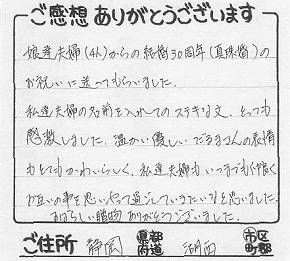 ご感想ありがとうございます
娘達夫婦(4人)からの結婚30周年(真珠婚)の
お祝いに送ってもらいました。
私達夫婦の名前を入れてのステキな文、とっても
感激しました。温かい優しいだるまさんの表情
もとてもかわいらしく、私達夫婦もいつまでも仲良く
お互いの事を思いやって過ごしていきたいなと思いました。
すばらしい贈物ありがとうございました。
ご住所 静岡 都道府県 湖西 市区町郡